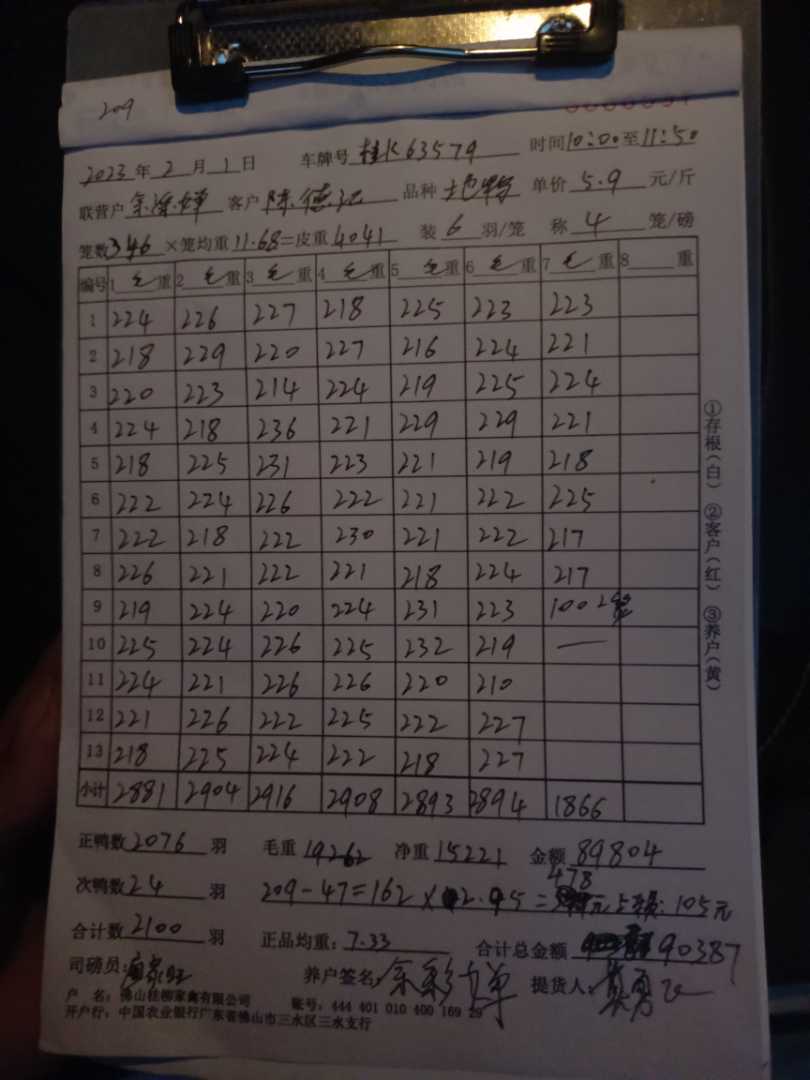 209
2023年2月1日 车牌号 桂K63579 时间10:00至11:50
联营户 客户 陈德记 品种 单价 5.9 元/斤
笼数346×笼均重11.68=皮重4041 装6羽/笼 称4笼/磅
编号 1毛重 2毛重 3毛重 4毛重 5毛重 6毛重 7毛重 8 重
1 224 226 227 218 225 223 223
2 218 229 220 227 216 224 221
3 220 223 214 224 219 225 224
4 224 218 236 221 229 229 221
5 218 225 231 223 221 219 218
6 222 224 226 222 221 222 225
7 222 218 222 230 221 222 217
8 226 221 222 221 218 224 217
9 219 224 220 224 231 223 100 2笼
10 225 224 226 225 232 219 —
11 224 221 226 226 220 210
12 221 226 222 225 222 227
13 218 225 224 222 218 227
小计 2881 2904 2916 2908 2893 2894 1866
正鸭数2076羽 毛重19262 净重15221 金额89804
次鸭数24羽 209-47=162×2.95=478元 105元
合计数2100羽 正品均重:7.33 合计总金额90387
司磅员: 养户签名: 提货人:
户 名:佛山桂柳家禽有限公司 账号:444 401 010 400 169 29
开户行:中国农业银行广东省佛山市三水区三水支行
①存根(白) ②客户(红) ③养户(黄)